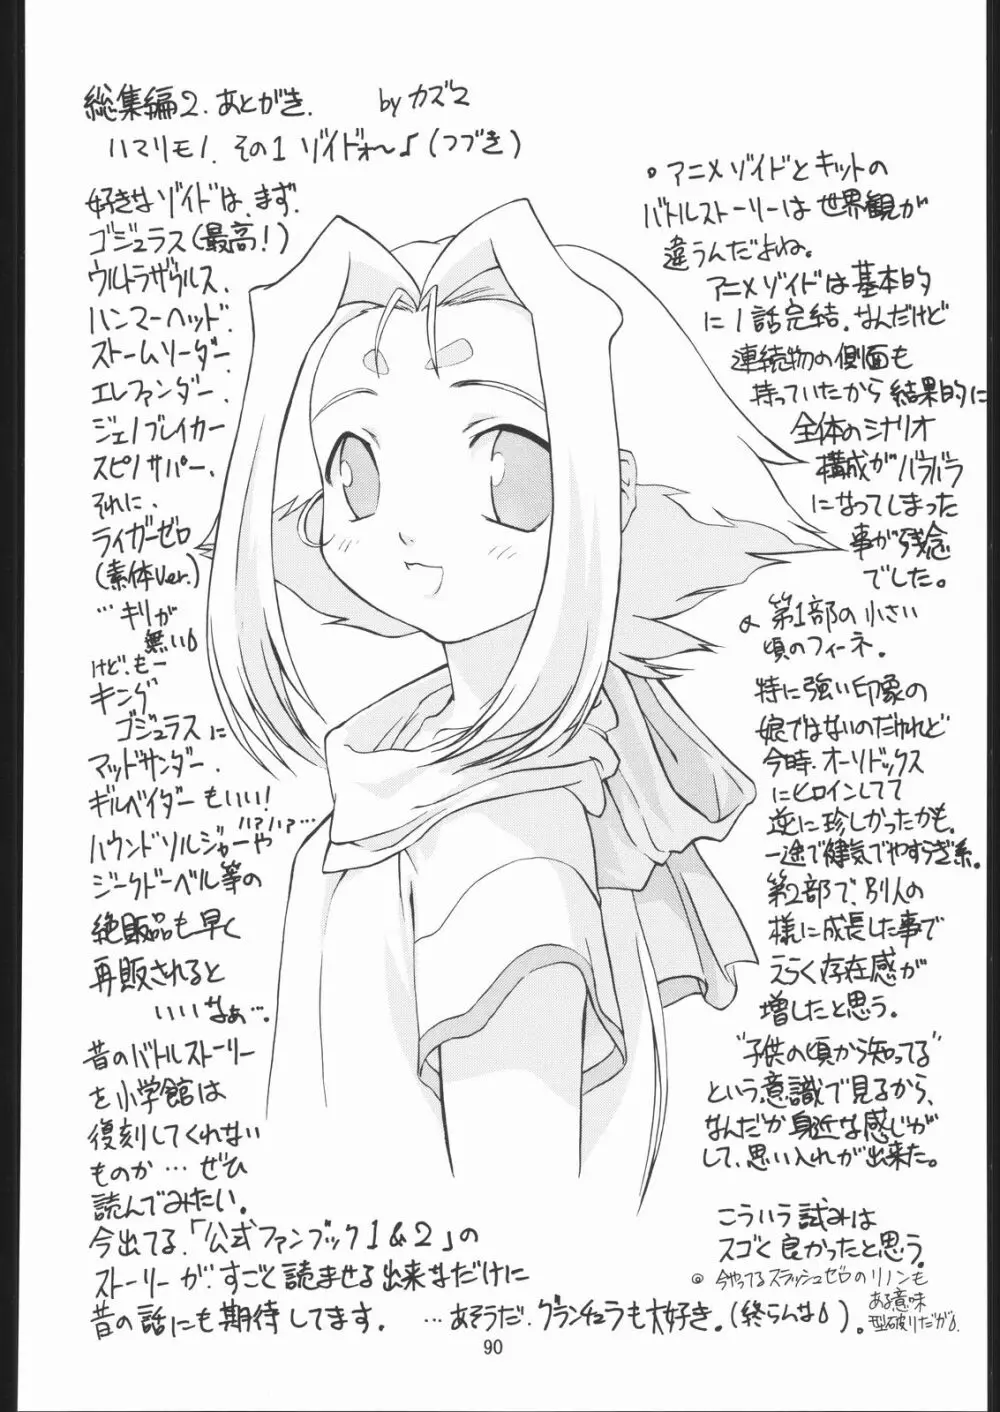 総集編2.あとがき. by カズマ
ハマリモノ.その1 ゾイドォ〜♪(つづき)
好きなゾイドは、まず.
ゴジュラス(最高!)
ウルトラザウルス.
ハンマーヘッド.
ストームソーダー.
エレファンダー.
ジェノブレイカー
スピノサパー.
それに.
ライガーゼロ
(素体ver.)
…キリが
無い
けど、もー
キング
ゴジュラスに
マッドサンダー.
ギルベイダーもいい!
ハァハァ…
ハウンドソルジャーや
ジークドーベル等の
絶販品も早く
再販されると
いいなぁ….
昔のバトルストーリー
を小学館は
復刻してくれない
ものか…ぜひ
読んでみたい.
今出てる.「公式ファンブック1&2」の
ストーリーが、すごと読ませる出来なだけに
昔の話にも期待してます. …あそうだ.グランチュラも大好き.(終らんな).
。アニメゾイドとキットの
バトルストーリーは世界観が
違うんだよね。
アニメゾイドは基本的
に1話完結、なんだけど
連続物の側面も
持っていたから結果的に
全体のシナリオ
構成がバラバラ
になってしまった
事が残念
でした。
第1部の小さい
頃のフィーネ.
特に強い印象の
娘ではないのだけれど
今時.オーソドックス
にヒロインしてて
逆に珍しかったかも.
一途で健気でやすらぎ系.
第2部で、別人の
様に成長した事で
えらく存在感が
増したと思う.
"子供の頃から知ってる"
という意識で見るから、
なんだか身近な感じが
して、思い入れが出来た。
こういう試みは
スゴく良かったと思う.
◎今やってるスラッシュゼロのリノンも
ある意味
型破りだが.
90